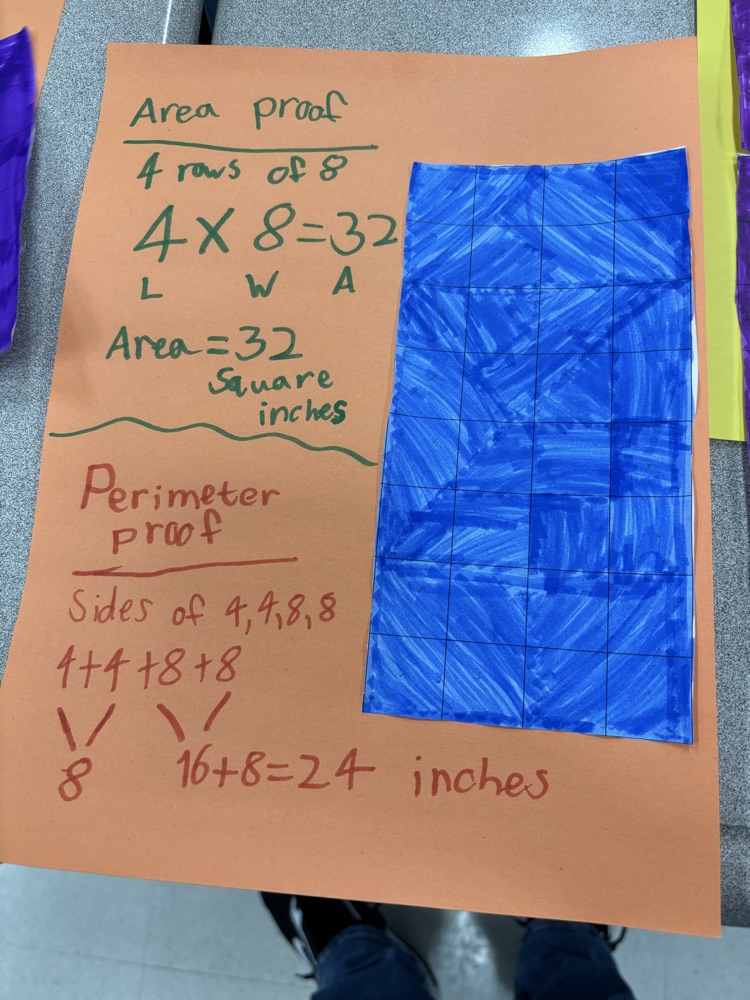 Area proof
4 rows of 8
4 x 8 = 32
L W A
Area = 32
Square
inches
Perimeter
proof
Sides of 4,4,8,8
4+4+8+8
8 16+8=24 inches